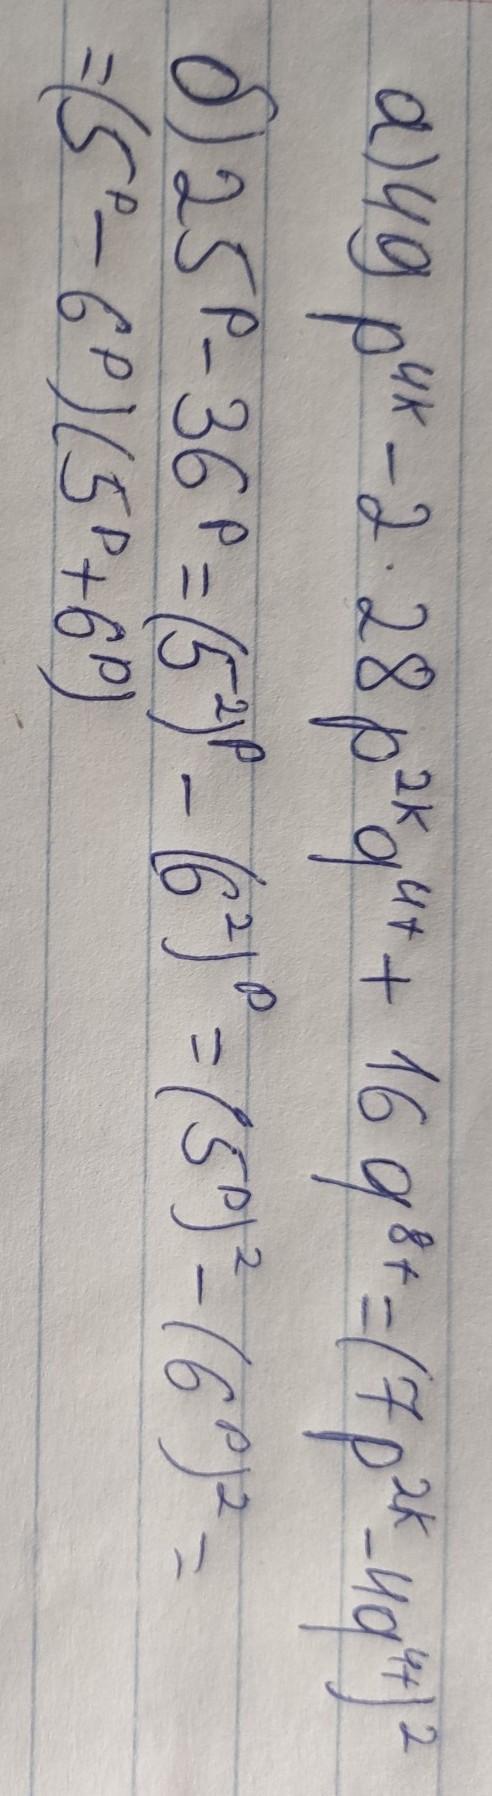 а) 49 p^{4k} - 2 · 28 p^{2k} q^{4t} + 16 q^{8t} = (7p^{2k} - 4q^{4t})^2
б) 25^p - 36^p = (5^2)^p - (6^2)^p = (5^p)^2 - (6^p)^2 =
= (5^p - 6^p)(5^p + 6^p)